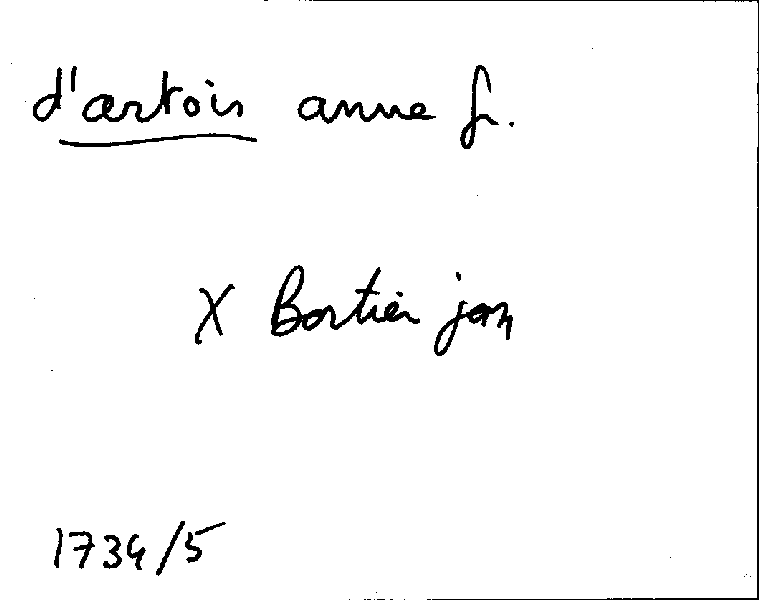 d'artois anne fr.
X Bortier jan
1734/5